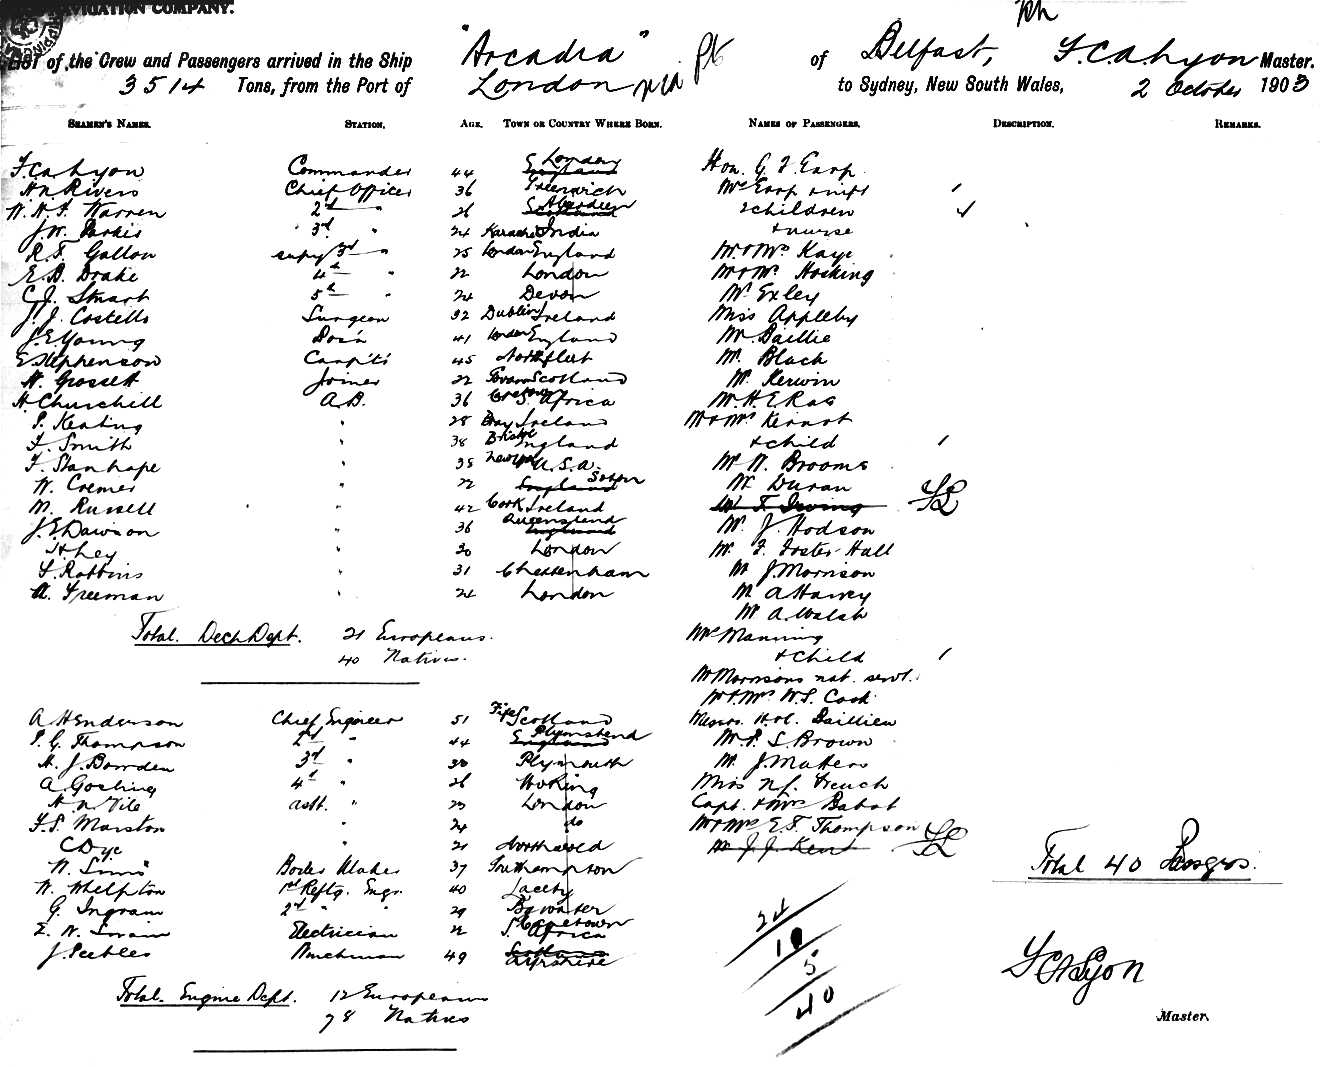 NAVIGATION COMPANY.
List of the Crew and Passengers arrived in the Ship "Arcadia" of Belfast, F. C. A. Lyon Master.
3514 Tons, from the Port of London to Sydney, New South Wales, 2 October 1903
SEAMEN'S NAMES. STATION. AGE. TOWN OR COUNTRY WHERE BORN. NAMES OF PASSENGERS. DESCRIPTION. REMARKS.
F. C. A. Lyon Commander 44 England London Hon. G. F. Earp
H. N. Rivers Chief Officer 36 Greenwich Mrs Earp
W. H. F. Warren 2nd " 26 Scotland Aberdeen 2 children
J. W. 3rd " 24 Karachi India + nurse
R. F. Gallon supy 3rd " 25 London England Mr & Mrs Kaye
E. B. Drake 4th " 22 London Mr & Mrs Hosking
C. J. Stuart 5th " 24 Devon Mr Exley
J. J. Costello Surgeon 32 Dublin Ireland Miss Appleby
J. E. Young Bos'n 41 London England Mr Baillie
E. Stephenson Carp'tr 45 Northfleet Mr Black
H. Grossett Joiner 22 Scotland Mr Kerwin
H. Churchill A.B. 36 S. Africa Mr H. E. Rae
P. Keating " 28 Bray Ireland Mr & Mrs
F. Smith " 38 Bristol England + child
F. Stanhope " 35 New York U.S.A. Mr W. Brooms
W. Cremer " 22 England Mr Duran
M. Russell " 42 Cork Ireland Mr F. Irving
J. E. Dawson " 36 England Mr J. Hodson
H. Ley " 30 London Mr F. Foster Hall
F. Robbins " 31 Cheltenham Mr J. Morrison
A. Freeman " 24 London Mr A Harvey
Mr A. Walsh
Total. Deck Dept. 21 Europeans. Mrs Manning
40 Natives. + child
Mr Morrisons nat. servt.
Mr & Mrs W. S. Cook
A Henderson Chief Engineer 51 Fife Scotland
P. G. Thompson 2nd " 44 England Mr P. S. Brown
H. J. Bowden 3rd " 30 Plymouth Mr J. Matters
A Gosling 4th " 26 Woking Miss French
H. N. Vile asst. " 23 London Capt. & Mrs Babot
F. S. Marston " 24 do Mr & Mrs E. S. Thompson
C Dye " 21 Northwold Mr J. J. Kent
W. Sims Boiler Maker 37 Southampton
W. Whelpton 1st Refltg. Engr. 40 Laceby
G. Ingram 2nd " " 29
E. W. Swain Electrician 22 Capetown S. Africa
J. Peebles 49 Scotland Ayrshire
Total 40 Passgrs.
24
5
40
Total. Engine Dept. 12 Europeans
78 Natives
F C A Lyon
Master.